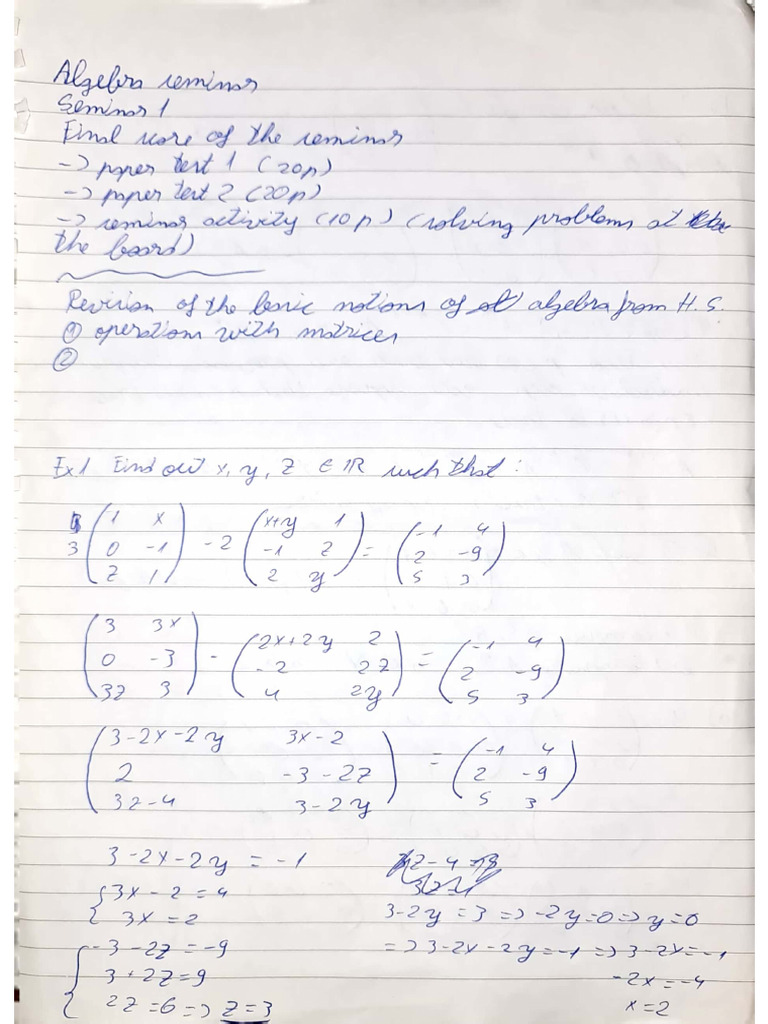 Algebra seminar
Seminar 1
Final score of the seminar
-> paper test 1 (20p)
-> paper test 2 (20p)
-> seminar activity (10p) (solving problems at
the board)
Revision of the basic notions of algebra from H.S.
① operations with matrices
②
Ex1 Find out x, y, z ∈ ℝ such that:
3 (1 x; 0 -1; z 1) - 2 (x+y 1; -1 z; 2 y) = (-1 4; 2 -9; 5 3)
(3 3x; 0 -3; 3z 3) - (2x+2y 2; -2 2z; 4 2y) = (-1 4; 2 -9; 5 3)
(3-2x-2y 3x-2; 2 -3-2z; 3z-4 3-2y) = (-1 4; 2 -9; 5 3)
3-2x-2y = -1
{ 3x-2 = 4
3x = 2
{ -3-2z = -9
3+2z = 9
2z = 6 => z = 3
3-2y = 3 => -2y = 0 => y = 0
=> 3-2x-2y = -1 => 3-2x = -1
-2x = -4
x = 2